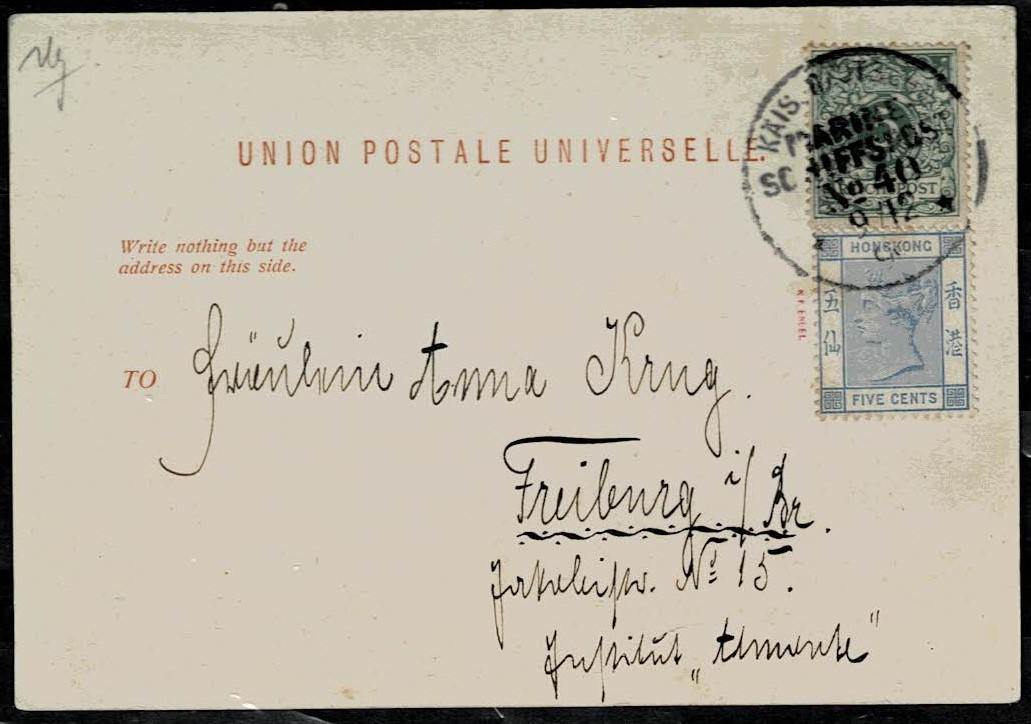 UNION POSTALE UNIVERSELLE.
KAIS.
MARINE
SCHIFFSPOST
No 40
9/12
REICHSPOST
Write nothing but the
address on this side.
HONGKONG
香港
五仙
FIVE CENTS
TO Fräulein Anna Krug.
Freiburg i/Br.
No 15.
Institut